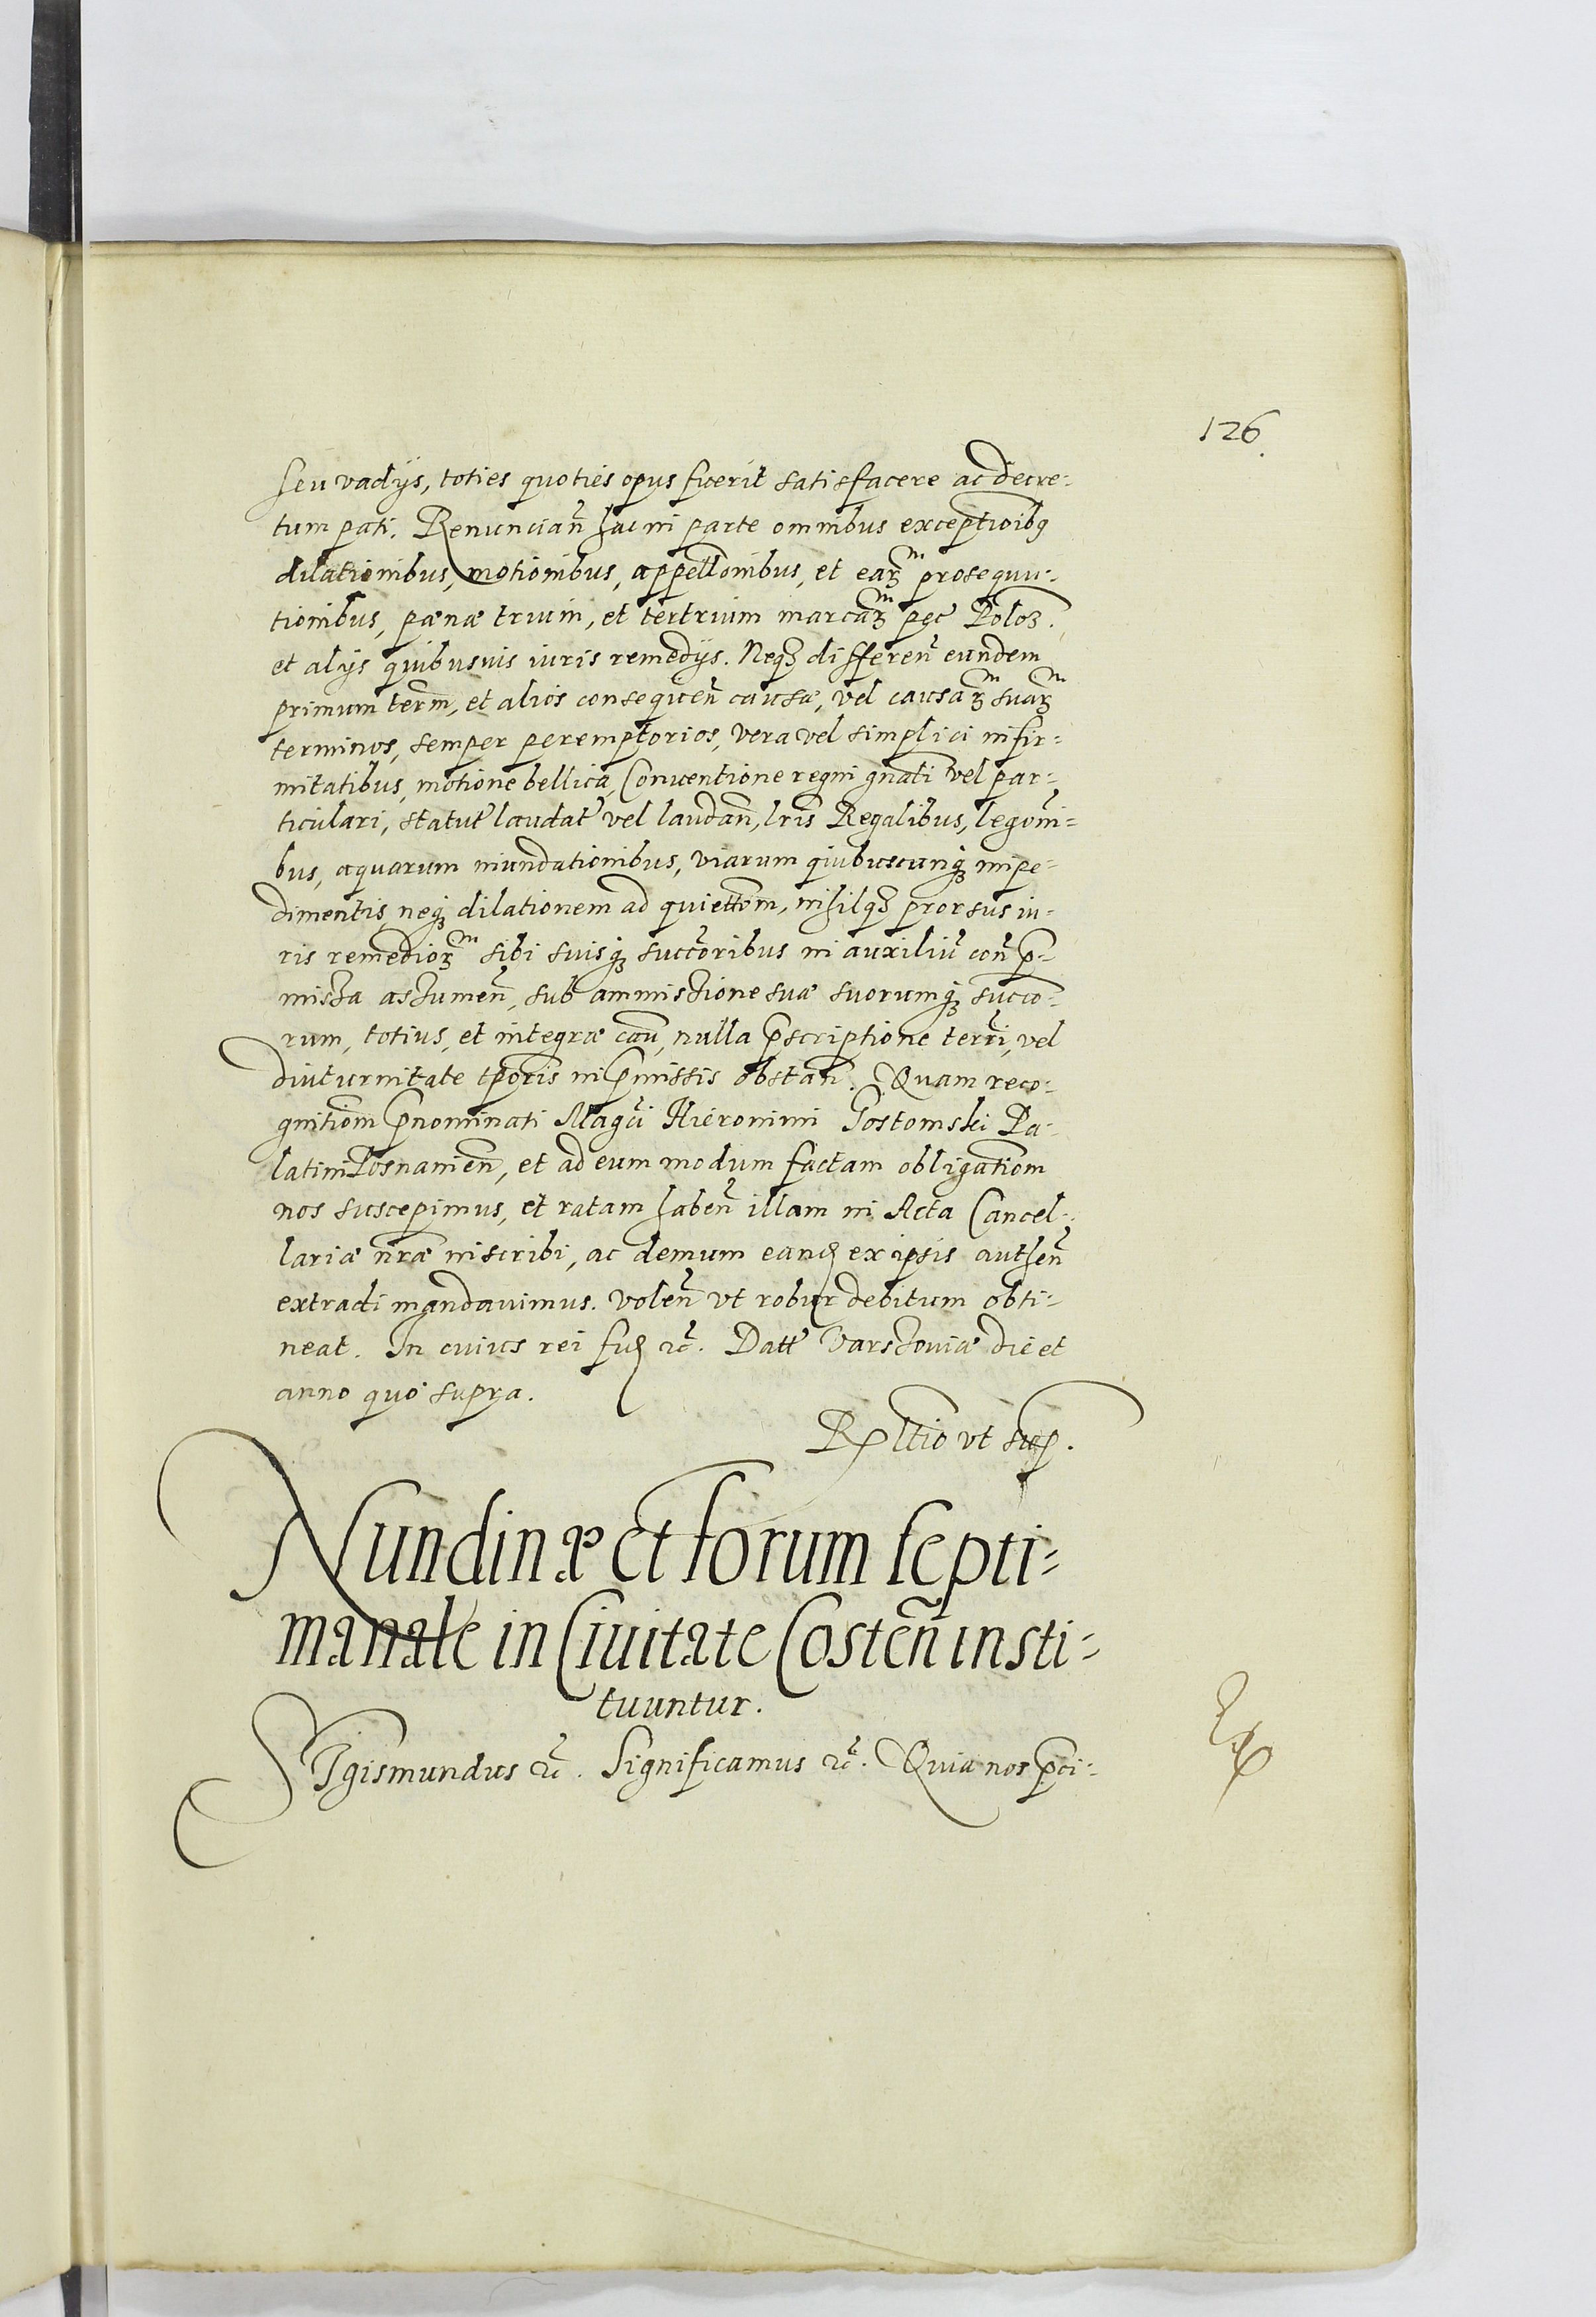 126.
seu vadijs, toties quoties opus fuerit satisfacere ac decre-
tum pati. Renuncian̄ hac in parte omnibus exceptioībꝫ
dilationibus, motionibus, appell̄onibus, et earꝫ prosequu-
tionibus, pænæ trium, et tertrium marcarꝫ pec̄ Poloꝫ.
et alijs quibusuis iuris remedijs. Neqꝫ differen̄ eundem
primum term̄, et alios consequen̄ causæ, vel causarꝫ suarꝫ
terminos, semper peremptorios, vera vel simplici infir-
mitatibus, motione bellica, Conuentione regni gn̄ali vel par-
ticulari, statut̄ laudat̄ vel laudan̄, lr̄is Regalibus, legōni-
bus, aquarum inundationibus, viarum quibuscunqꝫ impe-
dimentis, neqꝫ dilationem ad quiett̄om, nihilqꝫ prorsus iu-
ris remediorꝫ sibi suisqꝫ succ̄oribus in auxiliū con̄ p̄-
missa assumen̄, sub ammissione suæ suorumqꝫ succo-
rum, totius, et integræ caū, nulla p̄scriptione terr̄i, vel
diuturnitate tp̄oris in p̄missis obstan̄. Quam reco-
gnitiōm p̄nominati Magc̄i Hieronimi Gostomski Pa-
latini Posnanien̄, et ad eum modum factam obligatiōm
nos suscepimus, et ratam haben̄ illam in Acta Cancel-
lariæ nr̄æ inscribi, ac demum eand ex ipsis authen̄
extradi mandauimus. Volen̄ vt robur debitum obti-
neat. In cuius rei fid ꝛc̄. Datt̄ Varssoviæ die et
anno quo supra.
Rltio vt sup.
Nundinæ et forum septi-
manale in Ciuitate Costen̄ insti-
tuuntur.
SIgismundus ꝛc̄. Significamus ꝛc̄. Quia nos p̄ci-